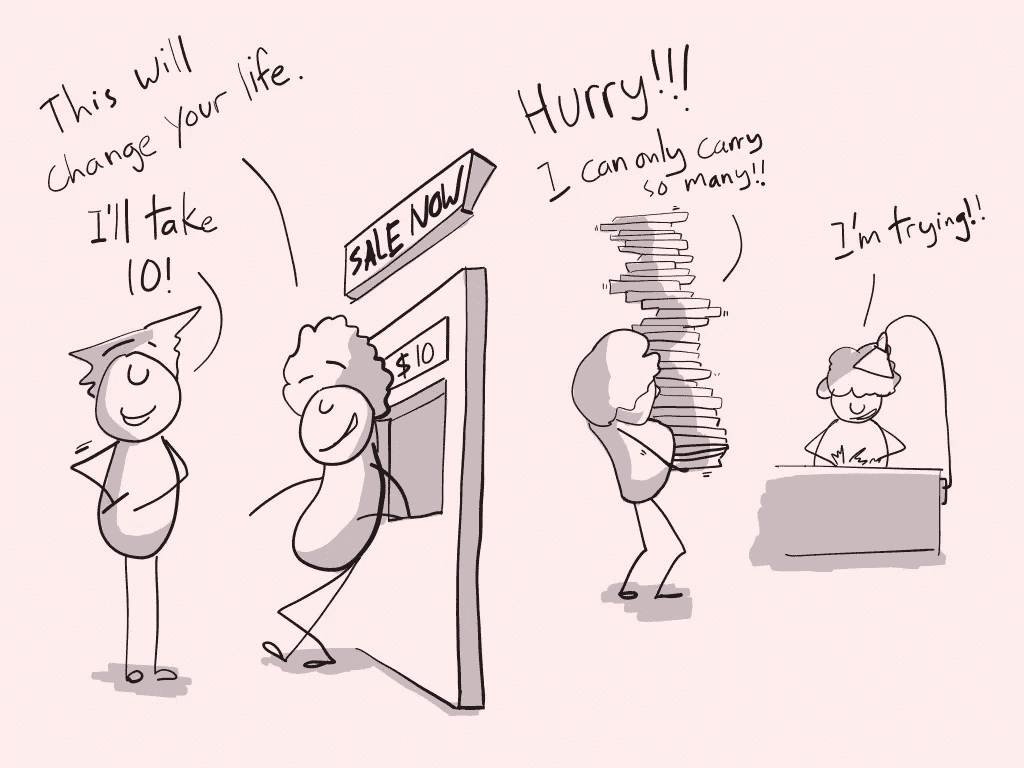 This will
change your life.
I'll take
10!
SALE NOW
$10
Hurry!!!
I can only carry
so many!!
I'm trying!!